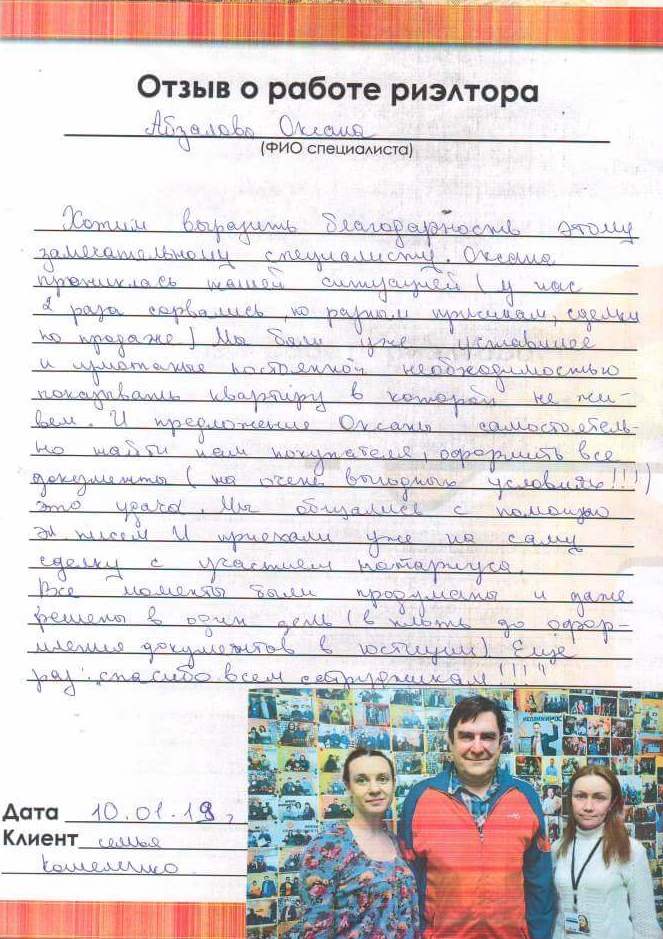 Отзыв о работе риэлтора
Абзалова Оксана
(ФИО специалиста)
Хотим выразить благодарность этому
замечательному специалисту. Оксана
прониклась нашей ситуацией (у нас
2 раза сорвались, по разным причинам, сделки
по продаже) Мы были уже уставшие
и измотаные постоянной необходимостью
показывать квартиру в которой не жи-
вем. И предложение Оксаны самостоятель-
но найти нам покупателя, оформить все
документы (на очень выгодных условиях!!!)
это удача. Мы общались с помощью
эл писем и приехали уже на саму
сделку с участием нотариуса.
Все моменты были продуманы и даже
решены в один день (вплоть до офор-
мления документов в юстиции) Еще
раз спасибо всем сотрудникам!!!"
Дата 10.01.19 г
Клиент семья
Кошеленко